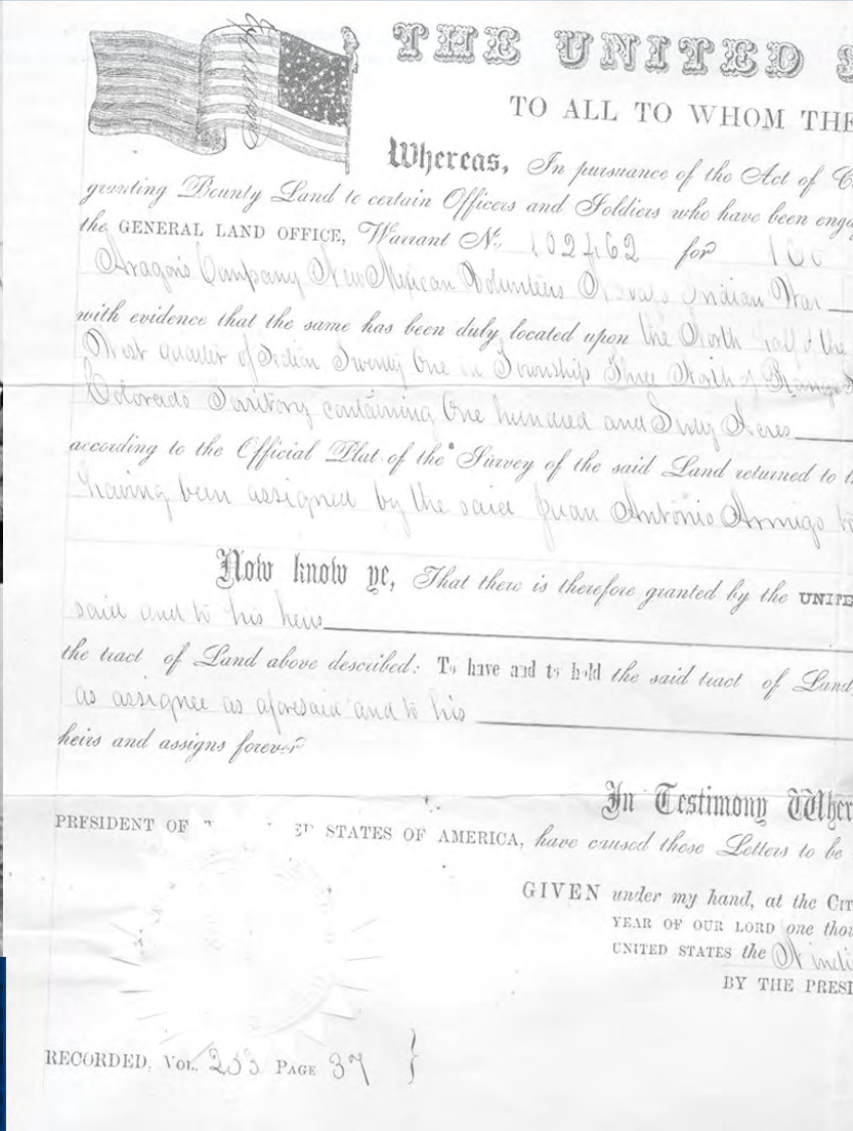 THE UNITED
TO ALL TO WHOM THE
Whereas, In pursuance of the Act of
granting Bounty Land to certain Officers and Soldiers who have been
the GENERAL LAND OFFICE, Warrant No. 102462 for
Aragons Company New Mexican Volunteers Indian War
with evidence that the same has been duly located upon the North half of the
West quarter of Section Twenty One in Township Three North of Range
Colorado Territory containing One hundred and Sixty Acres
according to the Official Plat of the Survey of the said Land returned to
having been assigned by the said Juan Antonio Armigo to
Now know ye, That there is therefore granted by the
said and to his heirs
the tract of Land above described: To have and to hold the said tract of Land,
as assignee as aforesaid and to his
heirs and assigns forever
In Testimony
PRESIDENT OF STATES OF AMERICA, have caused these Letters to be
GIVEN under my hand, at the
YEAR OF OUR LORD one
UNITED STATES the
BY THE
RECORDED, VOL. 253 PAGE 37